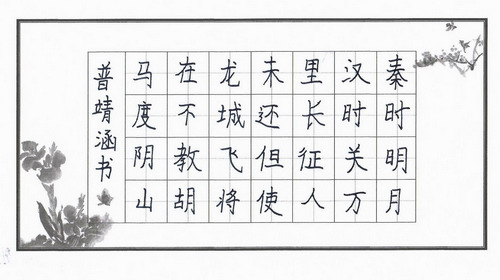 秦时明月
汉时关万
里长征人
未还但使
龙城飞将
在不教胡
马度阴山
普靖涵书